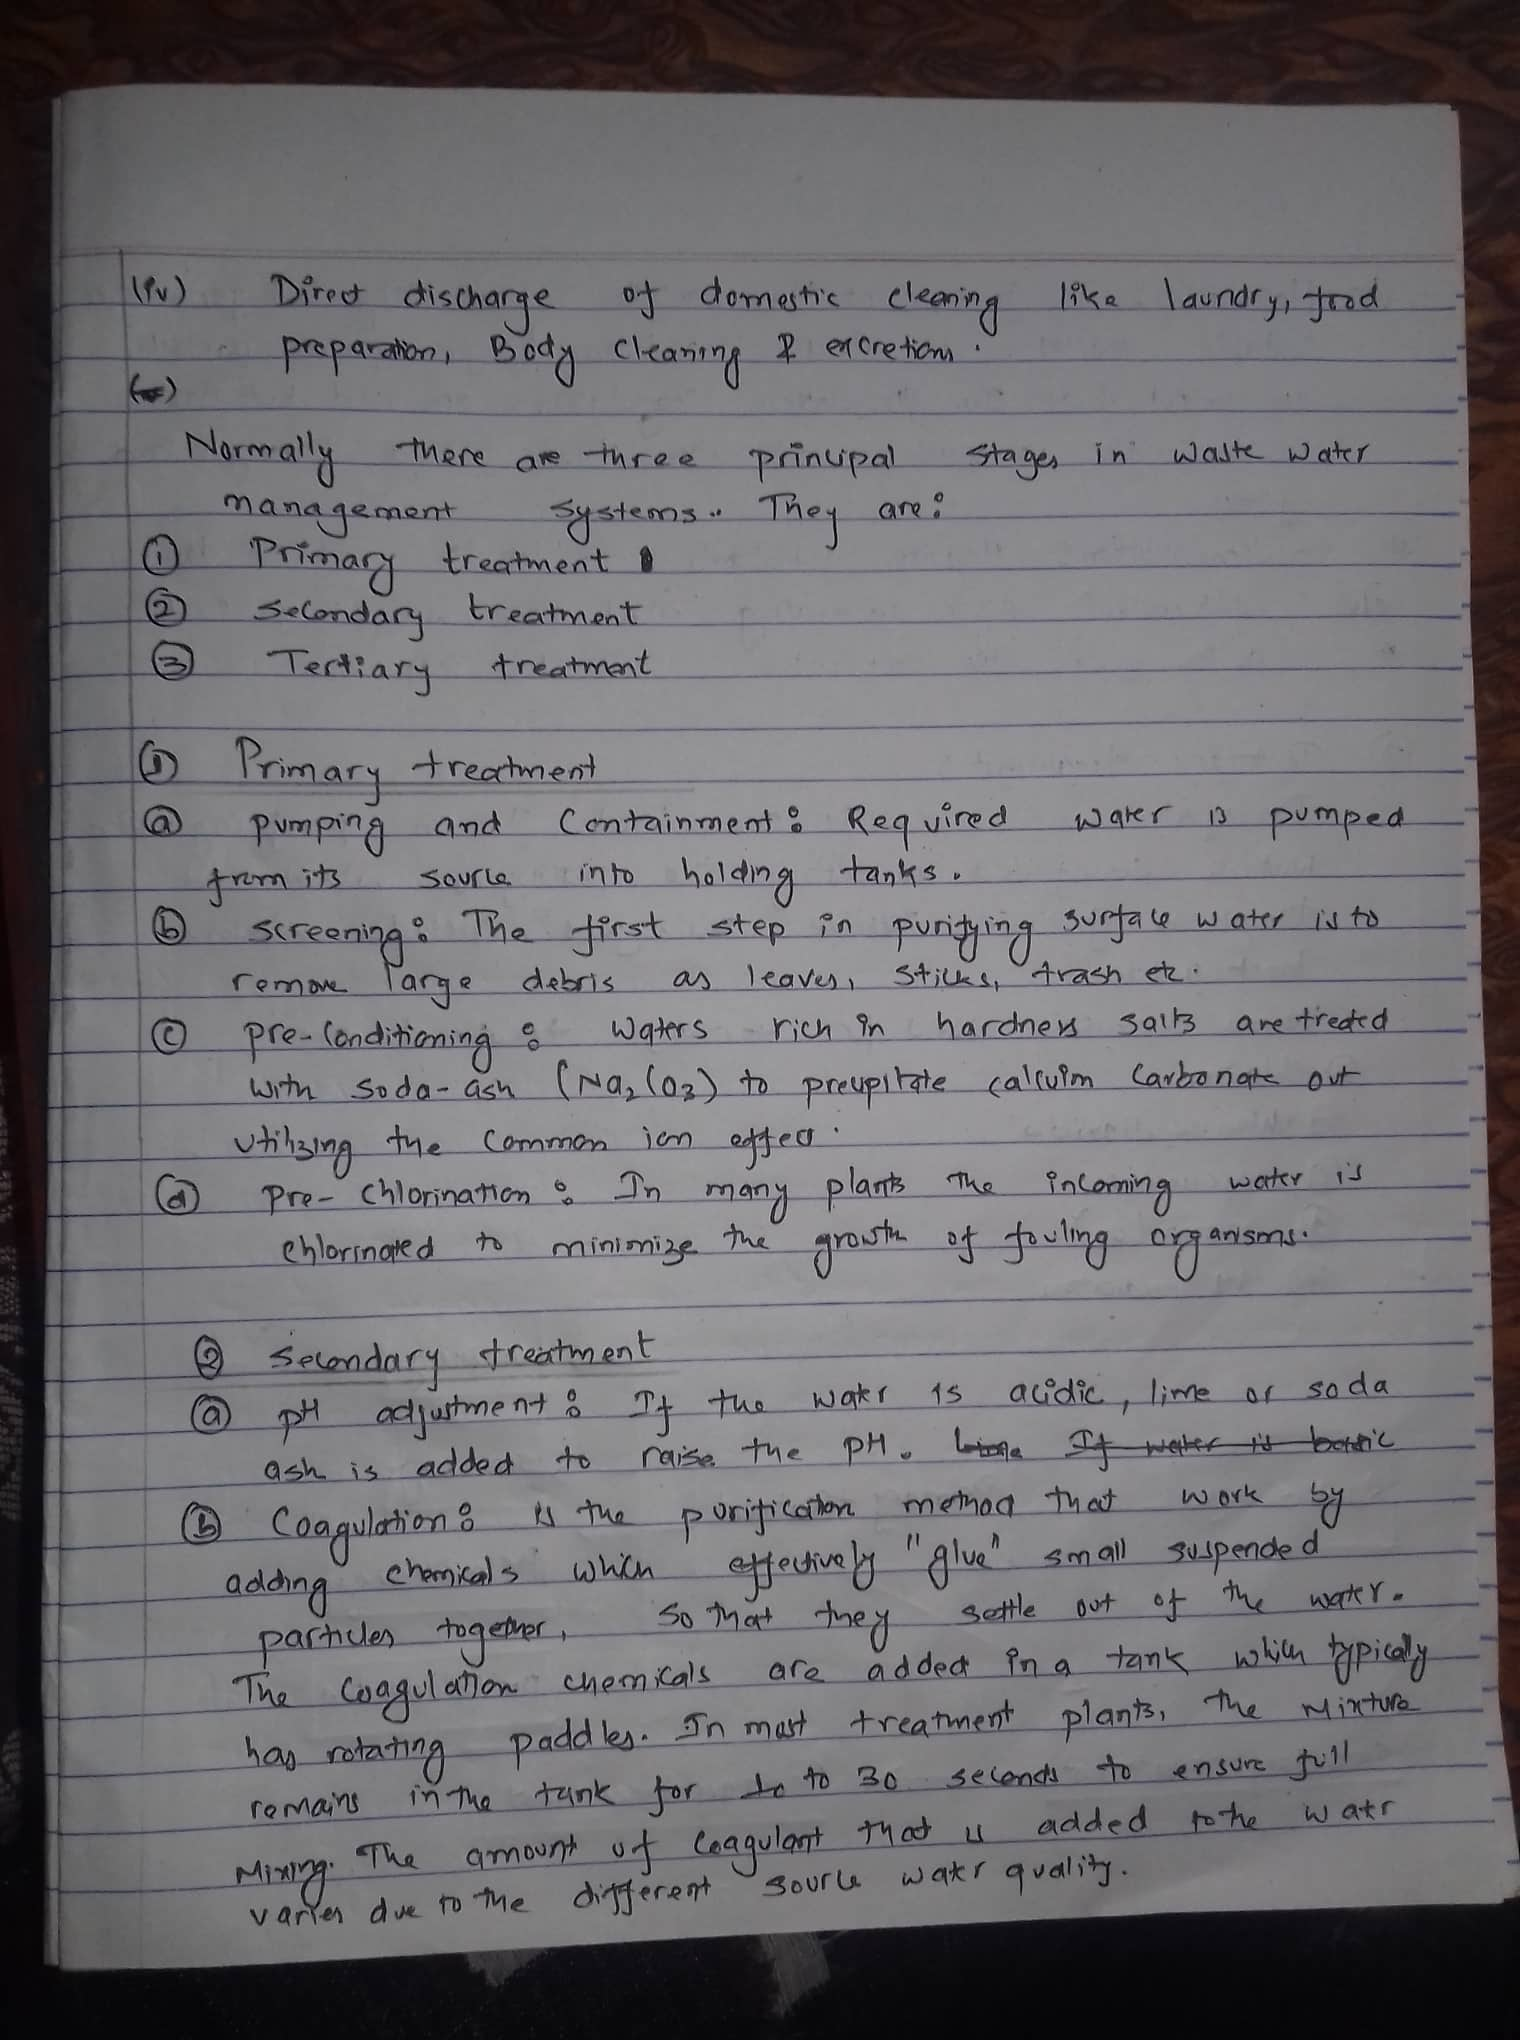 (iv) Direct discharge of domestic cleaning like laundry, food
preparation, Body cleaning & excretion.
Normally there are three principal stages in waste water
management systems. They are:
① Primary treatment
② Secondary treatment
③ Tertiary treatment
① Primary treatment
ⓐ Pumping and Containment: Required water is pumped
from its source into holding tanks.
ⓑ Screening: The first step in purifying surface water is to
remove large debris as leaves, sticks, trash etc.
ⓒ Pre-Conditioning: Waters rich in hardness salts are treated
with soda-ash (Na₂CO₃) to precipitate calcuim Carbonate out
utilizing the common ion effect.
ⓓ Pre-Chlorination: In many plants the incoming water is
chlorinated to minimize the growth of fouling organisms.
② Secondary treatment
ⓐ pH adjustment: If the water is acidic, lime or soda
ash is added to raise the pH. If water is
ⓑ Coagulation: is the purification method that work by
adding chemicals which effectively "glue" small suspended
particles together, so that they settle out of the water.
The Coagulation chemicals are added in a tank which typically
has rotating paddles. In most treatment plants, the Mixture
remains in the tank for to 30 seconds to ensure full
Mixing. The amount of Coagulant that is added to the water
varies due to the different source water quality.